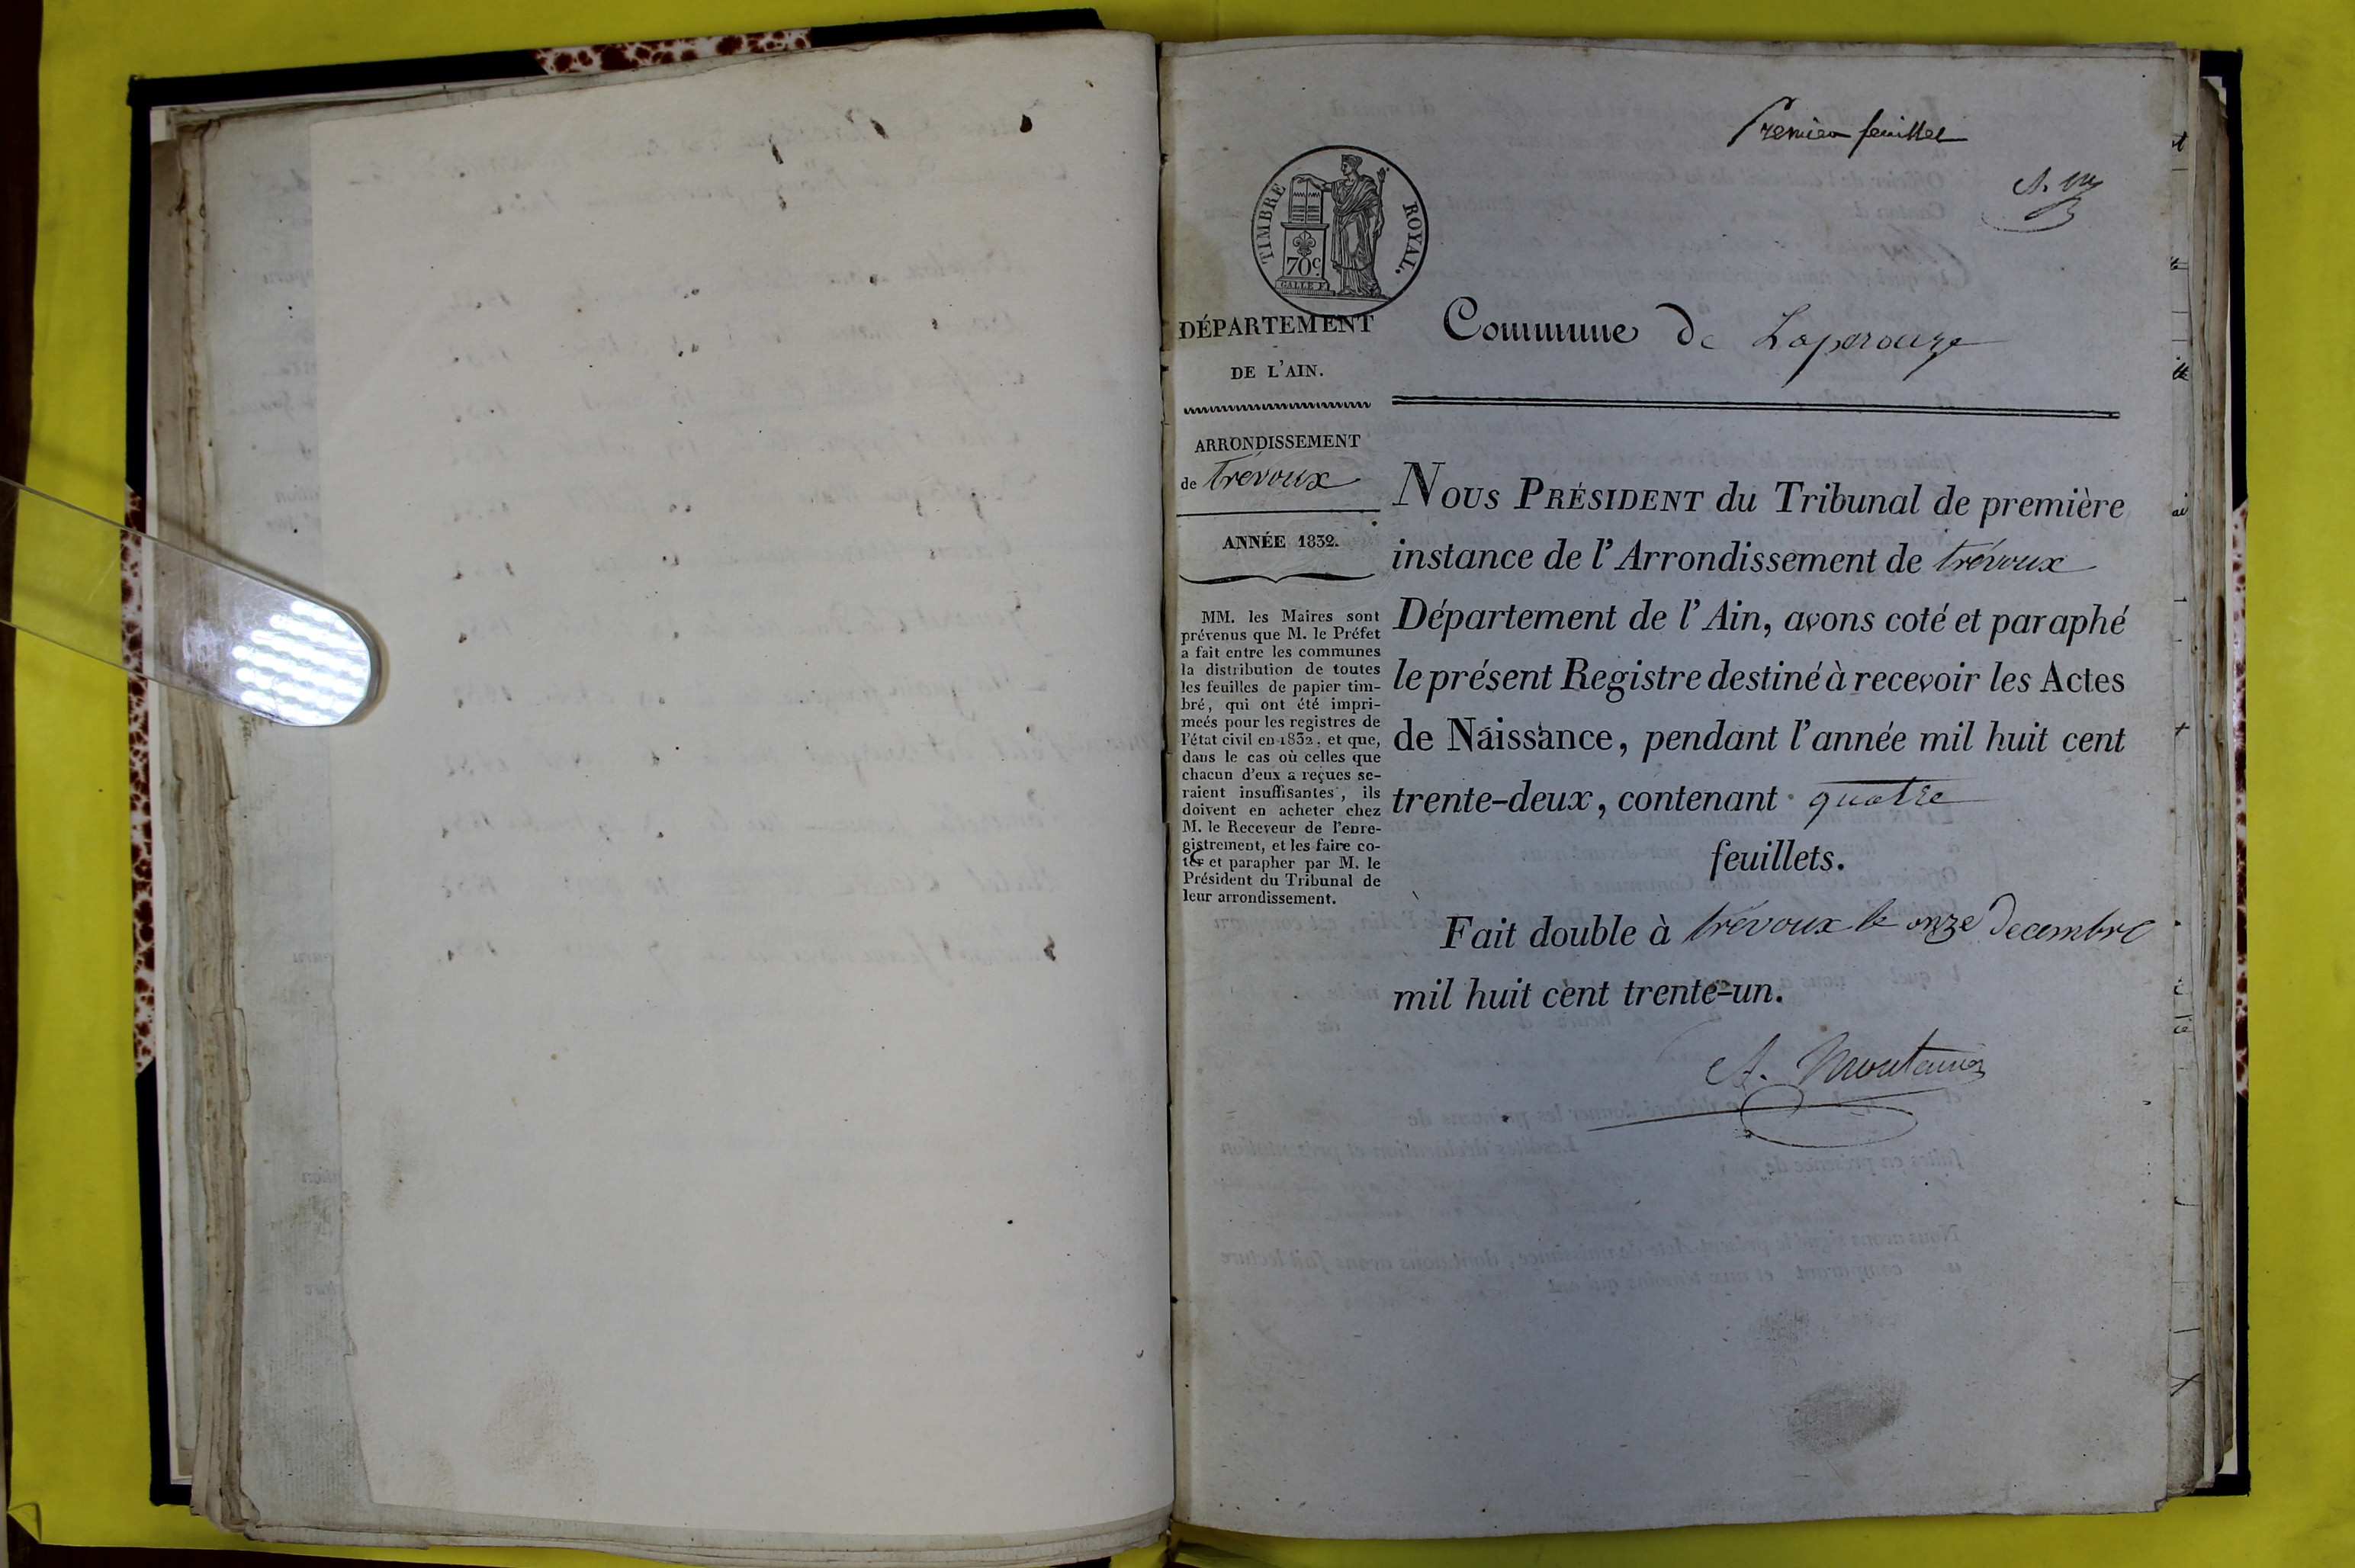 Premier feuillet
A. M
TIMBRE ROYAL.
70 c
DÉPARTEMENT
DE L'AIN.
Commune de Laperouze
ARRONDISSEMENT
de Trévoux
ANNÉE 1832.
MM. les Maires sont
prévenus que M. le Préfet
a fait entre les communes
la distribution de toutes
les feuilles de papier tim-
bré, qui ont été impri-
meés pour les registres de
l'état civil en 1832, et que,
dans le cas où celles que
chacun d'eux a reçues se-
raient insuffisantes, ils
doivent en acheter chez
M. le Receveur de l'enre-
gistrement, et les faire co-
ter et parapher par M. le
Président du Tribunal de
leur arrondissement.
NOUS PRÉSIDENT du Tribunal de première
instance de l'Arrondissement de trévoux
Département de l'Ain, avons coté et paraphé
le présent Registre destiné à recevoir les Actes
de Naissance, pendant l'année mil huit cent
trente-deux, contenant quatre
feuillets.
Fait double à trévoux le onze Decembre
mil huit cent trente-un.